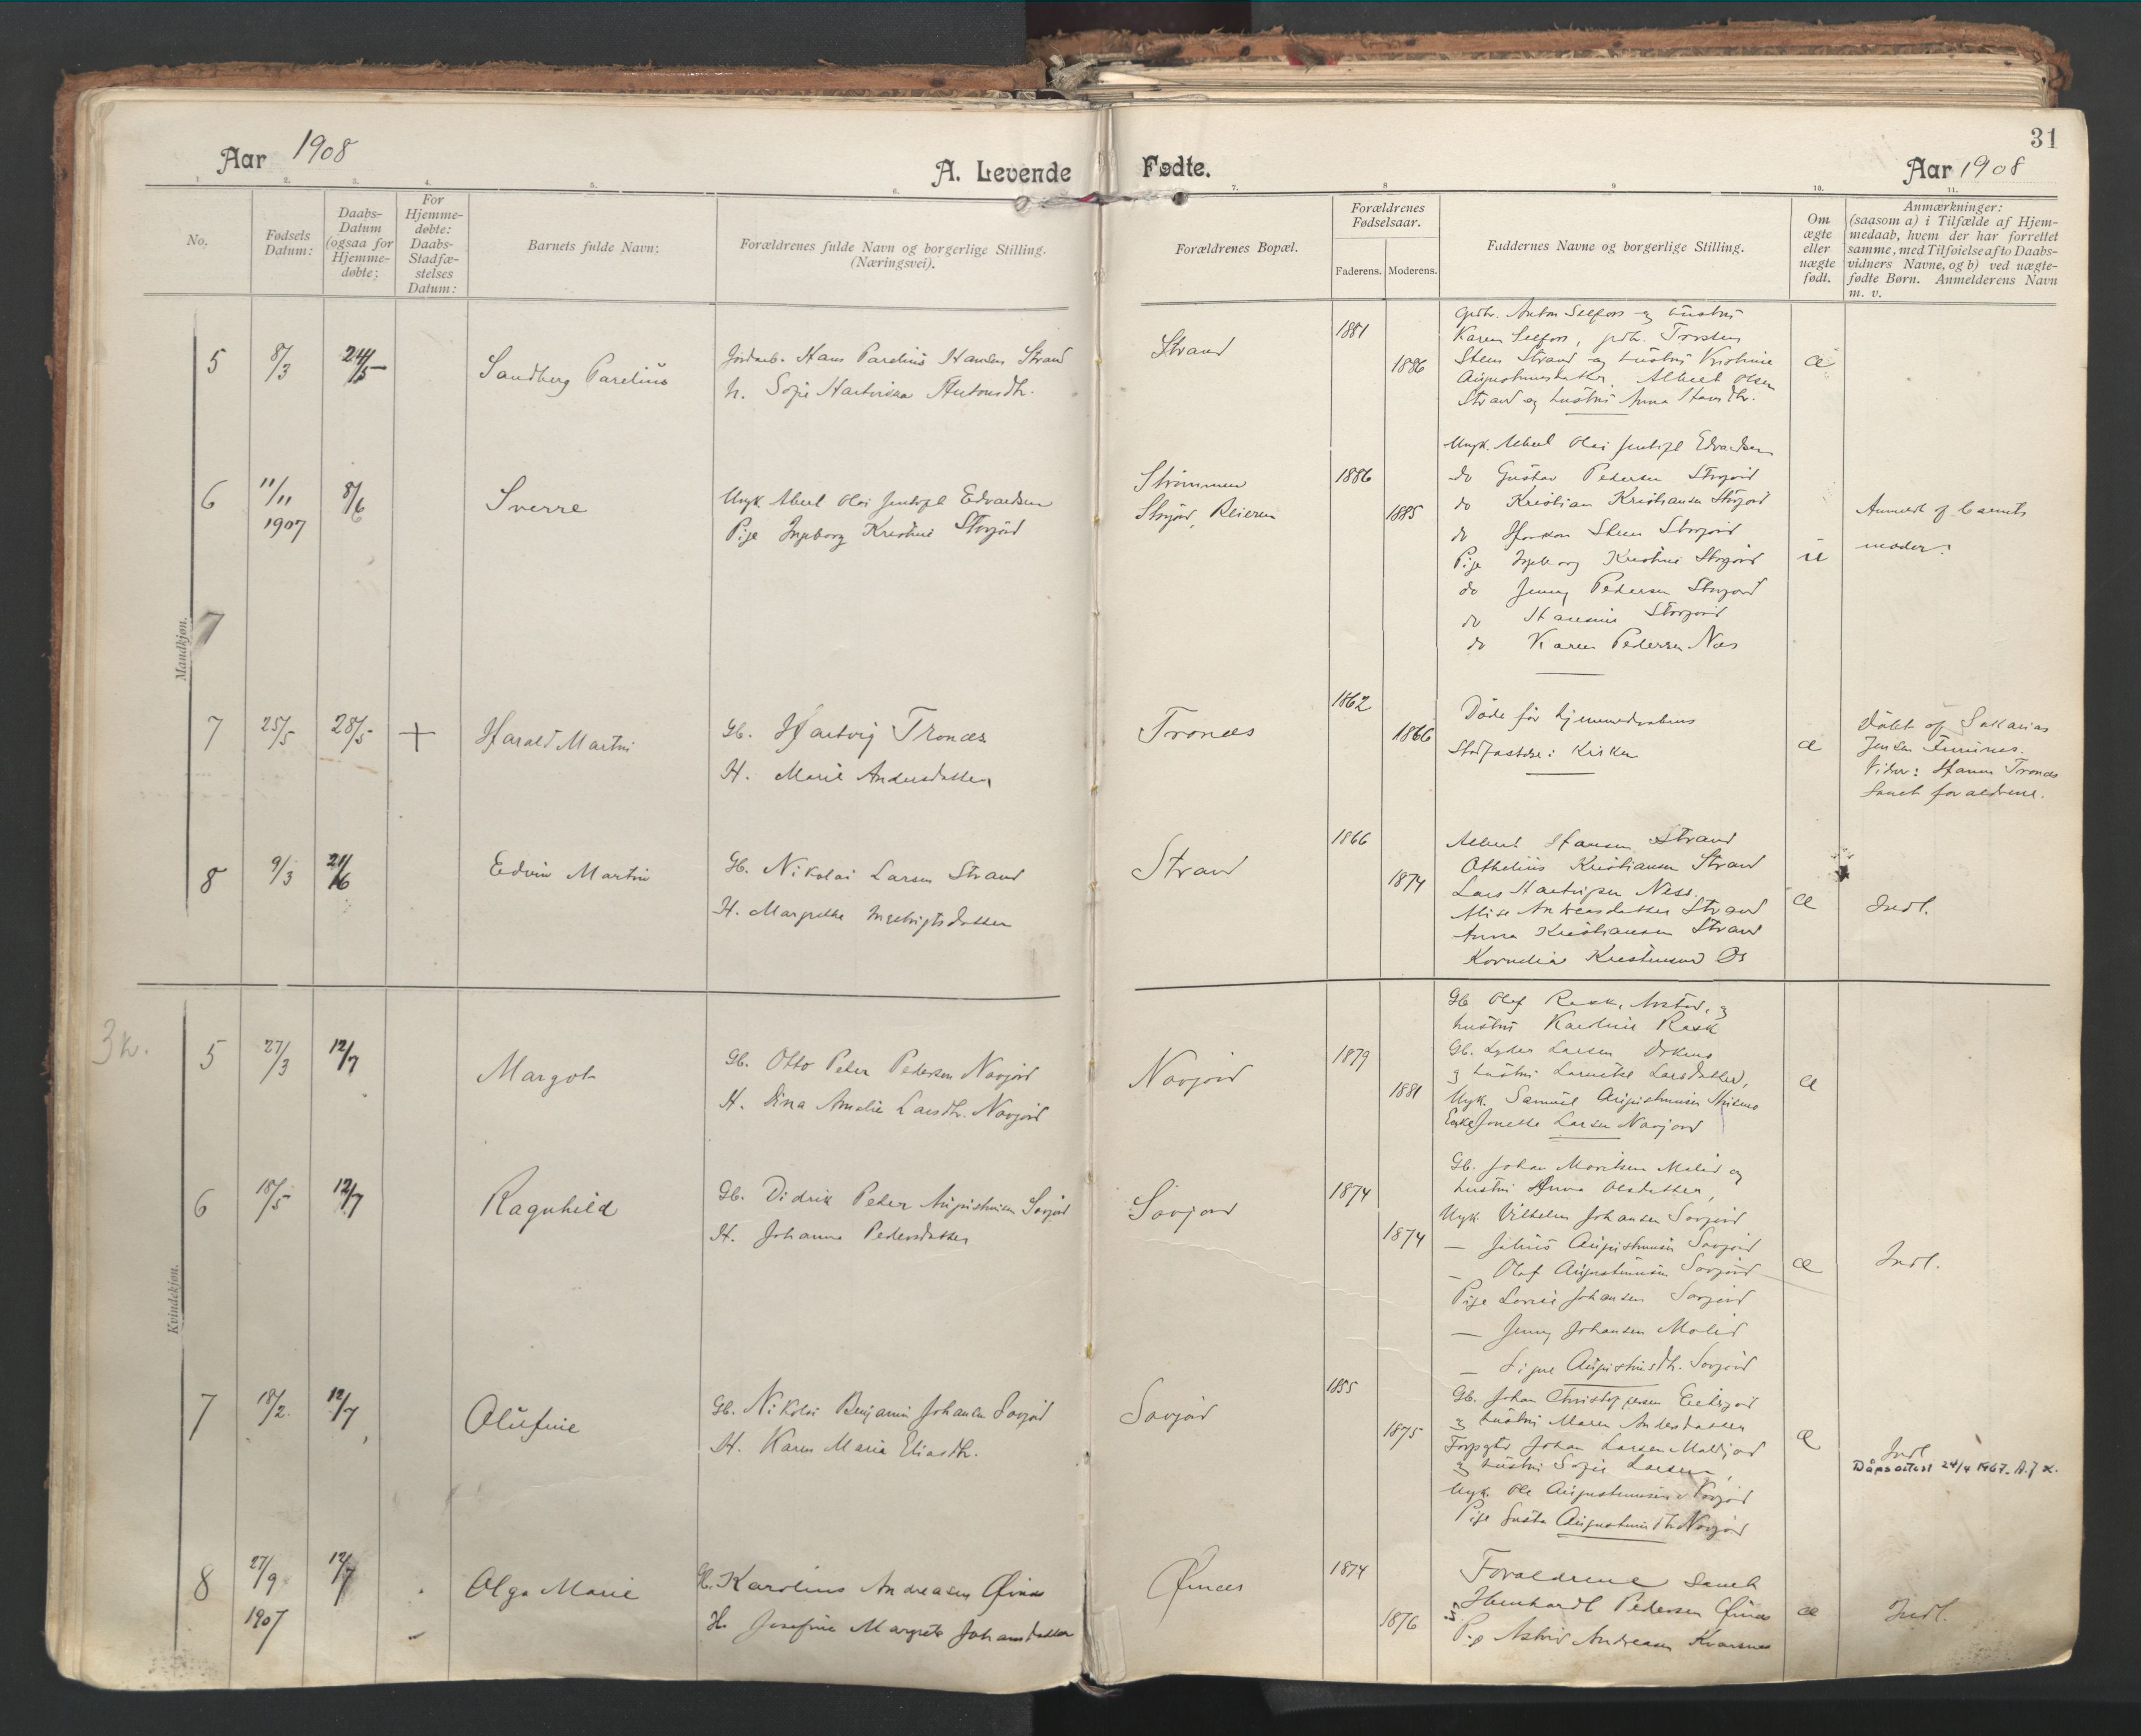 31
Aar 1908
A. Levende Fødte.
Aar 1908
1. 2. 3. 4. 5. 6. 7. 8 9 10. 11.
No.
Fødsels Datum:
Daabs-Datum (ogsaa for Hjemme-døbte:
For Hjemme-døbte: Daabs-Stadfæ-stelses Datum:
Barnets fulde Navn:
Forældrenes fulde Navn og borgerlige Stilling. (Næringsvei).
Forældrenes Bopæl.
Forældrenes Fødselsaar.
Faderens. Moderens.
Faddernes Navne og borgerlige Stilling.
Om ægte eller uægte født.
Anmærkninger:
(saasom a) i Tilfælde af Hjem-
medaab, hvem der har forrettet
samme, med Tilføielse af to Daabs-
vidners Navne, og b) ved uægte-
fødte Børn. Anmelderens Navn
m. v.
Mandkjøn.
5 8/3 24/5 Sandberg Parelius
Hans Parelius Hansen Strand
H. Sofie Hartvikka Antonsdtr.
Strand
1881
1886
Anton Selfors og hustru
Karen Selfors, Torsten
Steen Strand og hustru Kristine
Augustinusdatter, Albert Olsen
Strand og hustru Anna Hansdtr.
æ
6 11/11 1907 8/6 Sverre
Ungk. Albert Olai Edvardsen
Pige Ingeborg Kristine Storjord
Strømmen
Storjord, Beieren
1886
1885
Ungk. Albert Olai Edvardsen
do Gustav Pedersen Storjord
do Kristian Kristiansen Storjord
do Haakon Steen Storjord
Pige Ingeborg Kristine Storjord
do Jenny Pedersen Storjord
do Storjord
do Karen Pedersen Nes
u
Anmeldt af barnets
moder.
7
7 25/5 28/5 + Harald Martin
Gb. Hartvig Trones
H. Marie Andersdatter
Trones
1862
1866
Døde før hjemmedaabens
Stadfæstelse i Kirken
æ
Døbt af Sakarias
Jensen
Vidner: Hanna Trones
samt forældrene.
8 9/3 21/6 Edvin Martin
Gb. Nikolai Larsen Strand
H. Margrethe Ingebrigtsdatter
Strand
1866
1874
Albert Hansen Strand
Othelius Kristiansen Strand
Lars Hartvigsen Ness
Alise Andreasdatter Strand
Anna Kristiansen Strand
Kornelia Kristensen Os
æ
Indl.
Kvindekjøn.
3k.
5 27/3 12/7 Margot
Gb. Otto Peter Pedersen Navjord
H. Dina Amalie Larsdtr. Navjord
Navjord
1879
1881
Gb. Olaf Rask, Arstad, og
hustru Karoline Rask
Gb. Lyder Larsen
og hustru Larsdatter,
Ungk. Samuel Augustinusen
Enke Jonette Larsen Navjord
æ
6 18/5 12/7 Ragnhild
Gb. Didrik Peter Augustinusen Savjord
H. Johanna Pedersdatter
Savjord
1874
1874
Gb. Johan Moritsen Molid og
hustru Anna Olsdatter,
Ungk. Vilhelm Johansen Savjord
— Julius Augustinusen Savjord
— Olaf Augustinusen Savjord
Pige Lovise Johansen Savjord
— Jenny Johansen Molid
— Signe Augustinusdtr. Savjord
æ
Indl.
7 18/2 12/7 Olufine
Gb. Nikolai Benjamin Johansen Savjord
H. Karen Maria Eliasdtr.
Savjord
1855
1875
Gb. Johan Christophersen Eiterjord
og hustru Maren Andersdatter
Forpagter Johan Larsen Moldjord
og hustru Sofie Larsen,
Ungk. Ole Augustinusen Navjord
Pige Gusta Augustinusdtr Navjord
æ
Indl
Dåpsattest 24/4 1967. A.J.K.
8 27/9 1907 12/7 Olga Marie
Gb. Karolius Andreasen Øines
H. Josefine Margrete Johansdatter
Øines
1874
1876
Forældrene samt
Pedersen Øines
Pige Astrid Andreasen Kvarsnes
æ
Indl.